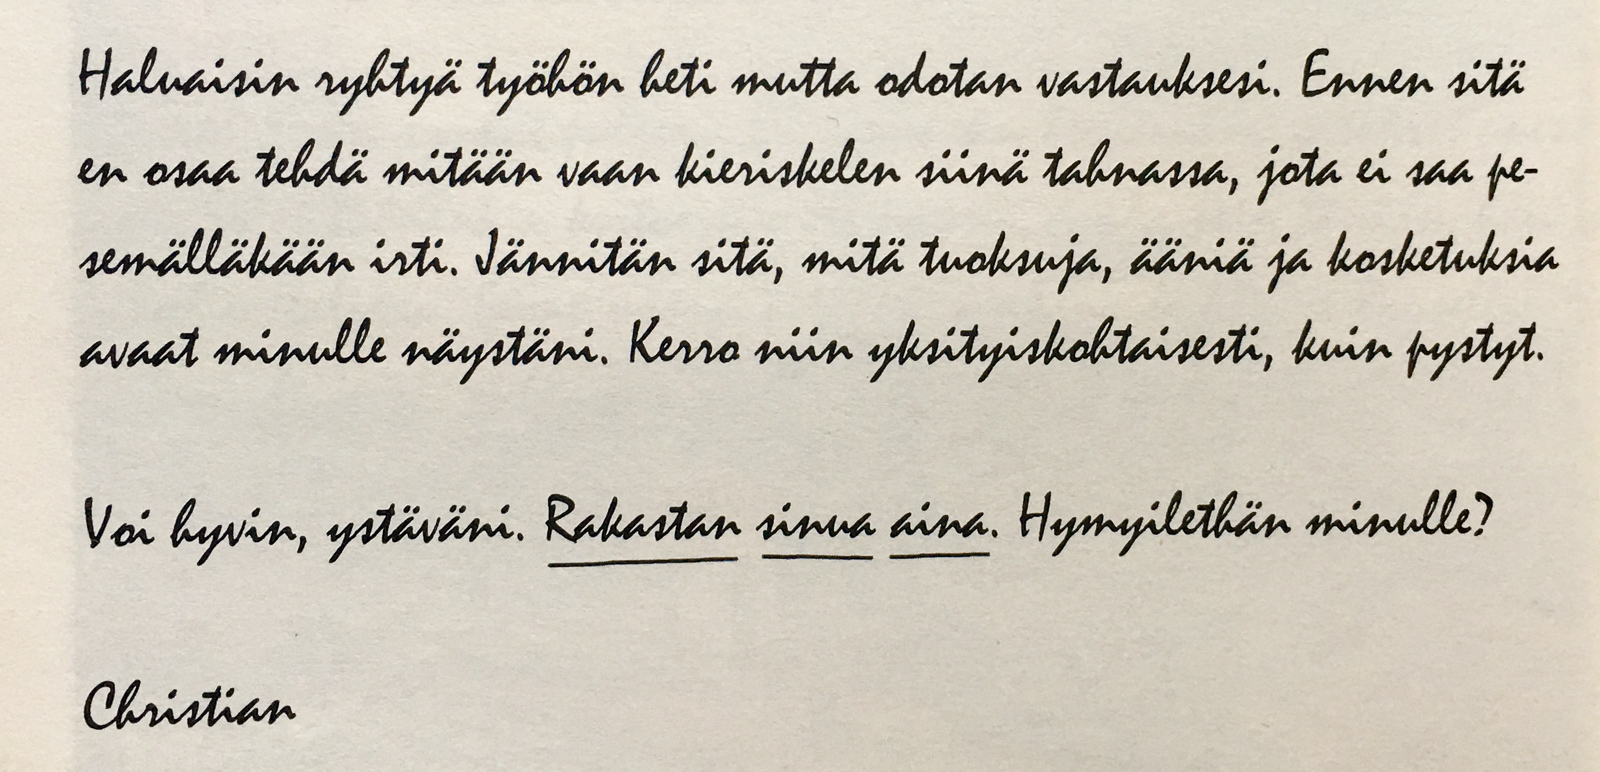 Haluaisin ryhtyä työhön heti mutta odotan vastauksesi. Ennen sitä
en osaa tehdä mitään vaan kieriskelen siinä tahnassa, jota ei saa pe-
semälläkään irti. Jännitän sitä, mitä tuoksuja, ääniä ja kosketuksia
avaat minulle näystäni. Kerro niin yksityiskohtaisesti, kuin pystyt.
Voi hyvin, ystäväni. Rakastan sinua aina. Hymyilethän minulle?
Christian